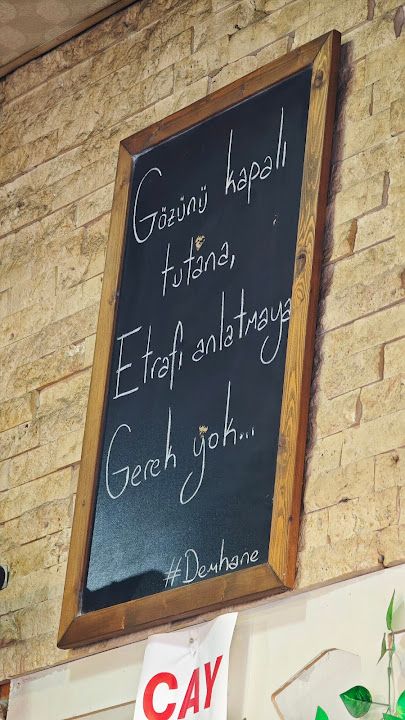 Gözünü kapalı
tutana,
Etrafı anlatmaya
Gerek yok...
#Demhane
ÇAY